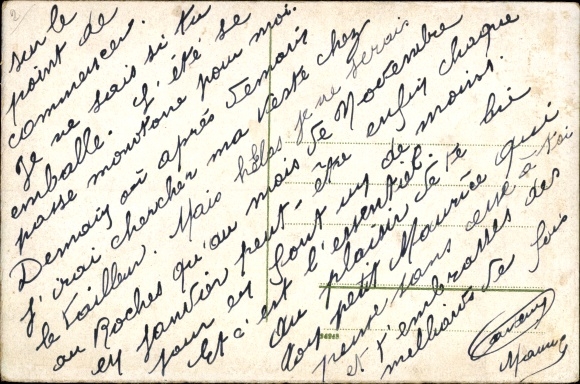 sur le
point de
commencer.
Je ne sais si tu
emballe. L'été se
passe monotone pour moi.
Demain ou après demain
j'irai chercher ma veste chez
le tailleur. Mais hélas je ne serais
au Roches qu'au mois de Novembre
en Janvier peut-être enfin chaque
jour en font un de moins.
Et c'est l'essentiel.
Au plaisir de te lire
ton petit Maurice qui
pense sans cesse à toi
et t'embrasses des
millions de fois